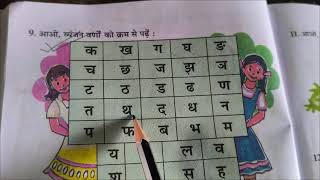 9. आओ, व्यंजन वर्णों को क्रम से पढ़ें :
क ख ग घ ङ
च छ ज झ ञ
ट ठ ड ढ ण
त थ द ध न
प फ ब भ म
य ल व
स ह
11. आओ